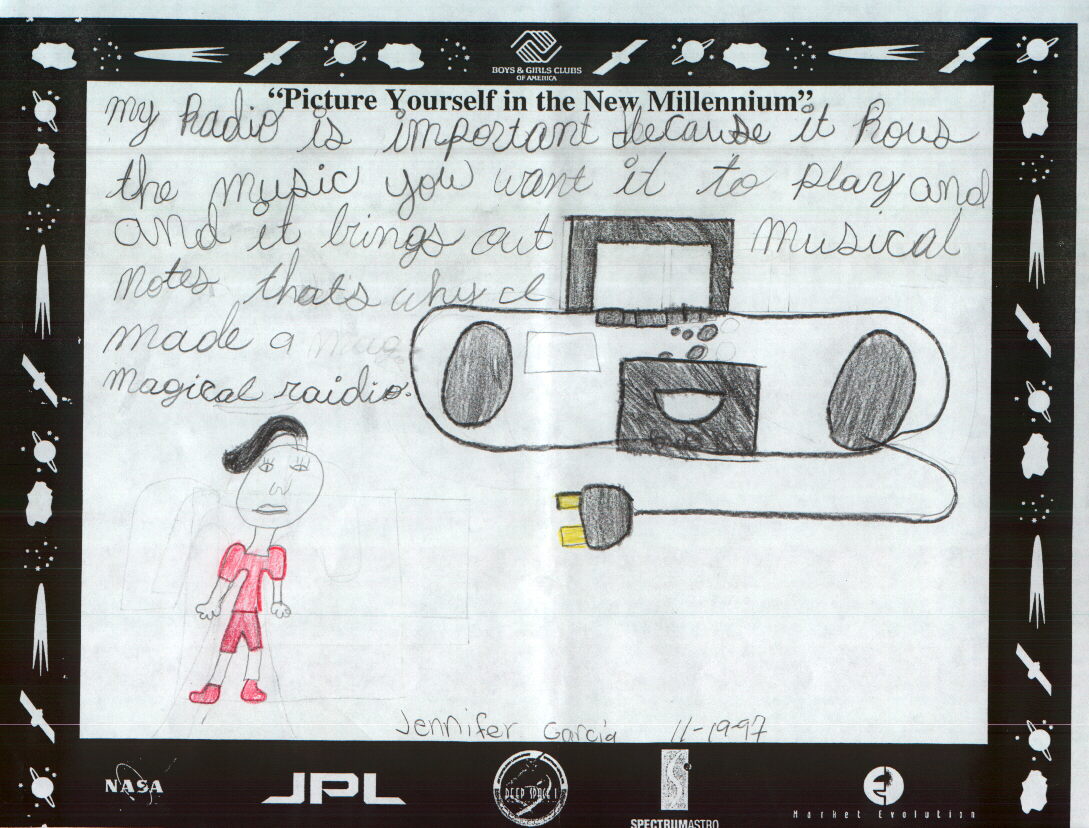 BOYS & GIRLS CLUBS
OF AMERICA
"Picture Yourself in the New Millennium"
my Radio is important because it hous
the music you want it to play and
and it brings out musical
notes thats why I
made a mag
magical raidio.
Jennifer Garcia 11-19-97
NASA
JPL
DEEP SPACE 1
SPECTRUMASTRO
Market Evolution